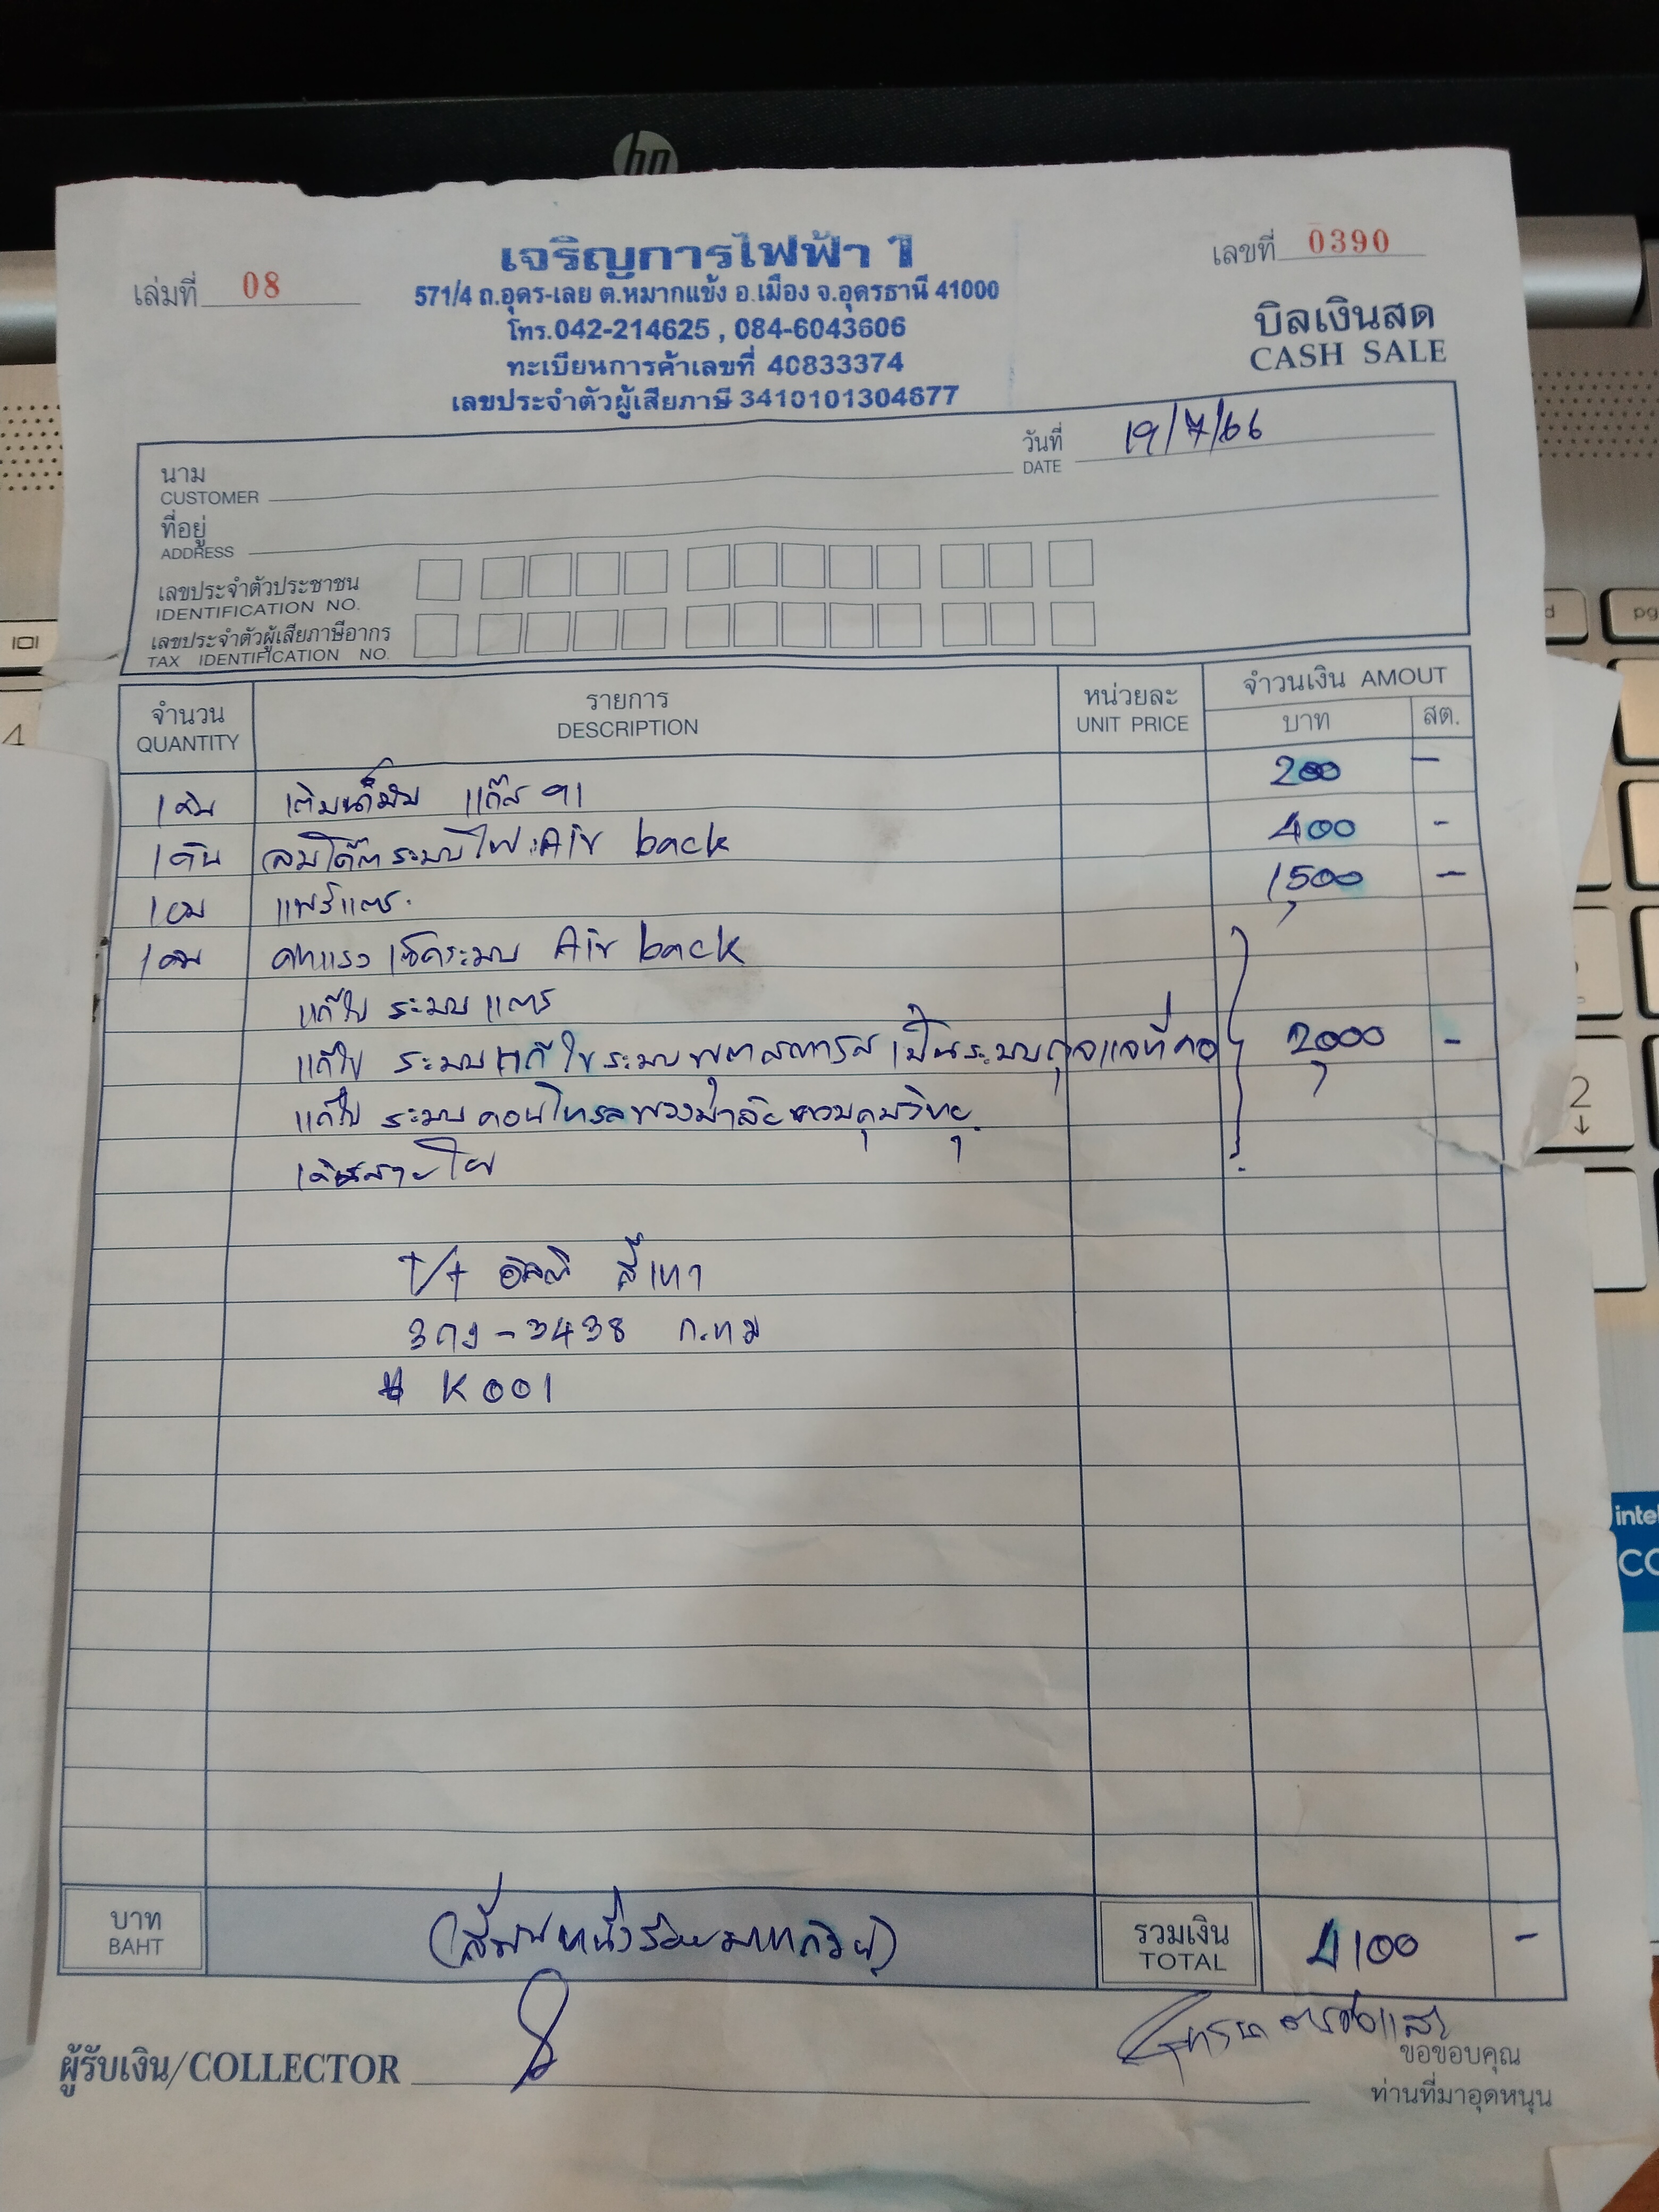 hp
เจริญการไฟฟ้า 1
เล่มที่ 08
เลขที่ 0390
571/4 ถ.อุดร-เลย ต.หมากแข้ง อ.เมือง จ.อุดรธานี 41000
โทร.042-214625 , 084-6043606
ทะเบียนการค้าเลขที่ 40833374
เลขประจำตัวผู้เสียภาษี 3410101304677
บิลเงินสด
CASH SALE
นาม
CUSTOMER
วันที่ 19/7/66
DATE
ที่อยู่
ADDRESS
เลขประจำตัวประชาชน
IDENTIFICATION NO.
เลขประจำตัวผู้เสียภาษีอากร
TAX IDENTIFICATION NO.
จำนวน รายการ หน่วยละ จำวนเงิน AMOUT
QUANTITY DESCRIPTION UNIT PRICE บาท สต.
1 คัน เติมน้ำมัน แก๊ส 91 200 -
1 คัน ระบบไฟ Air back 400 -
1 แพรแตร. 1,500 -
1 ค่าแรง เช็คระบบ Air back
แก้ไข ระบบ แตร
แก้ไข ระบบ แก้ไขระบบพุตสตาร์ส เป็นระบบกุจแจที่คอ 2,000 -
แก้ไข ระบบคอนโทรลพวงมาลัย ควบคุมวิทยุ
เดินสายไฟ
T/+ อัลติ สีเทา
3กง-3438 ก.ทม
# K001
บาท
BAHT
(สี่พันหนึ่งร้อยบาทถ้วน)
รวมเงิน 4100 -
TOTAL
ผู้รับเงิน/COLLECTOR
ขอขอบคุณ
ท่านที่มาอุดหนุน